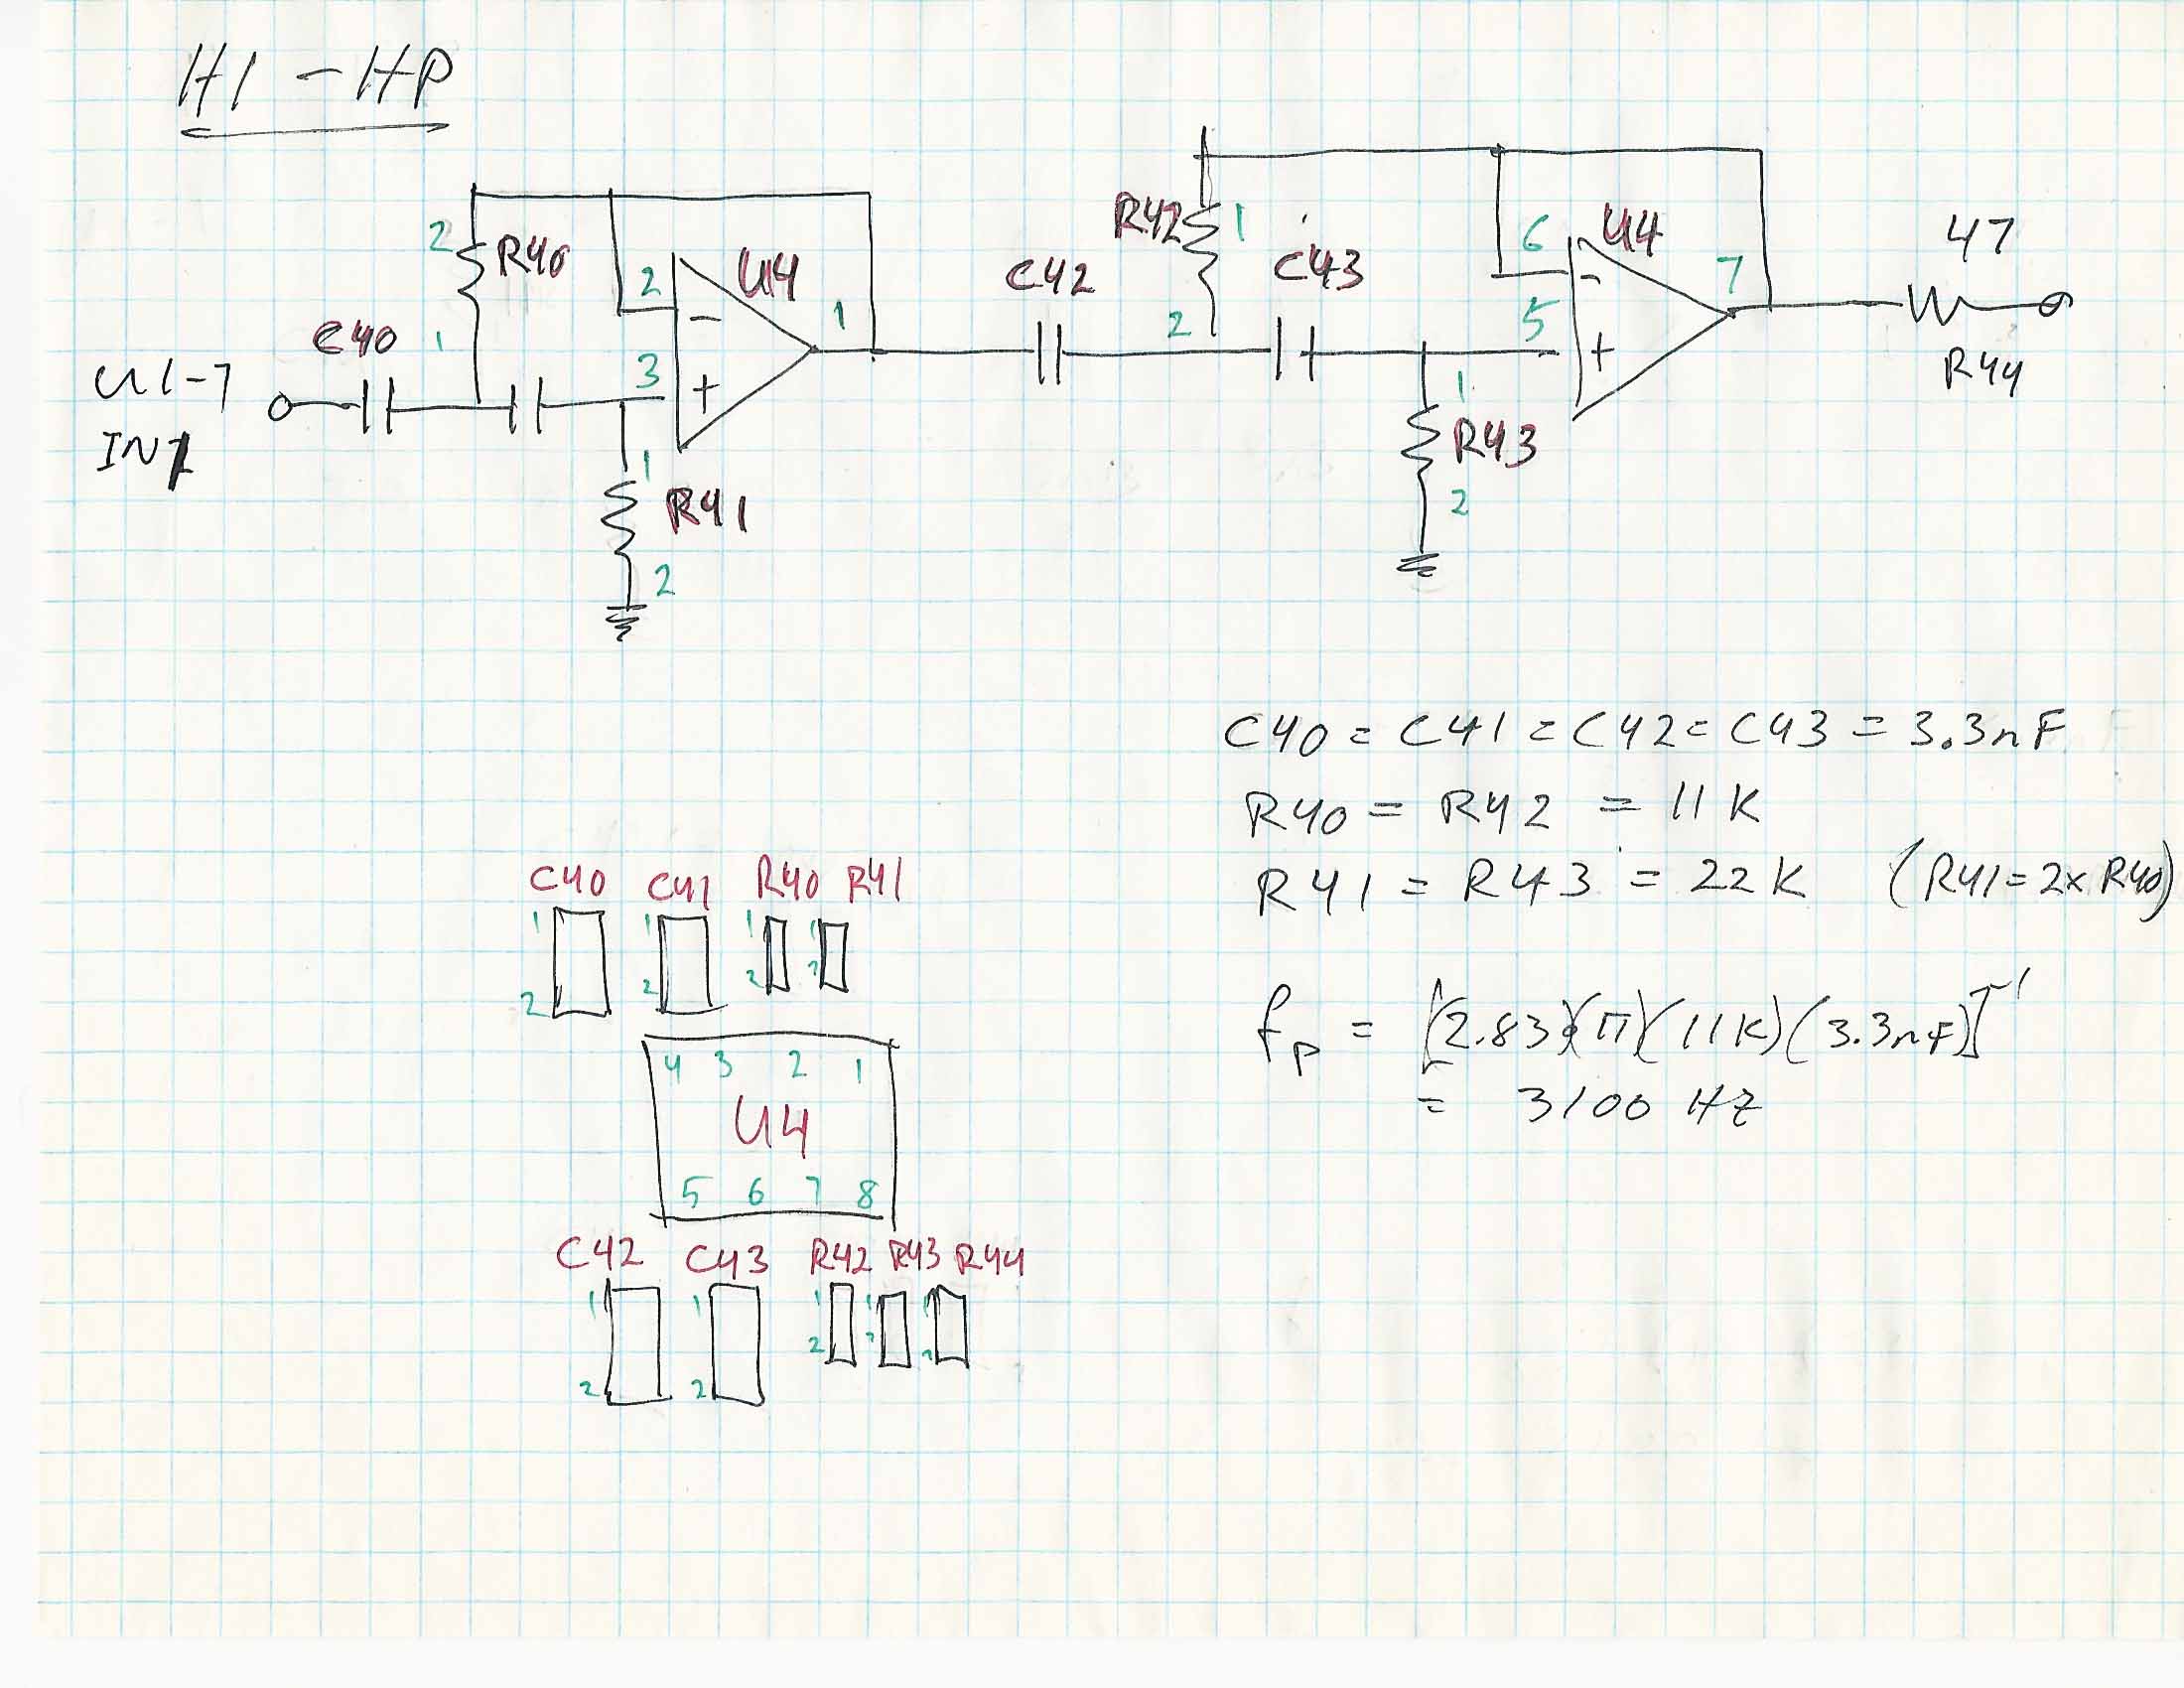 HI - HP
2 R40
1
C40
U1-7
IN1
2 U4
1
3
1
R41
2
C42
R42 1
2
C43
6 U4
7
5
1
R43
2
47
R44
C40 = C41 = C42 = C43 = 3.3nF
R40 = R42 = 11K
R41 = R43 = 22K (R41=2x R40)
fp = [(2.83)(π)(11K)(3.3nF)]⁻¹
= 3100 HZ
C40 C41 R40 R41
1 1 1 1
2 2 2 2
4 3 2 1
U4
5 6 7 8
C42 C43 R42 R43 R44
1 1 1 1 1
2 2 2 2 2